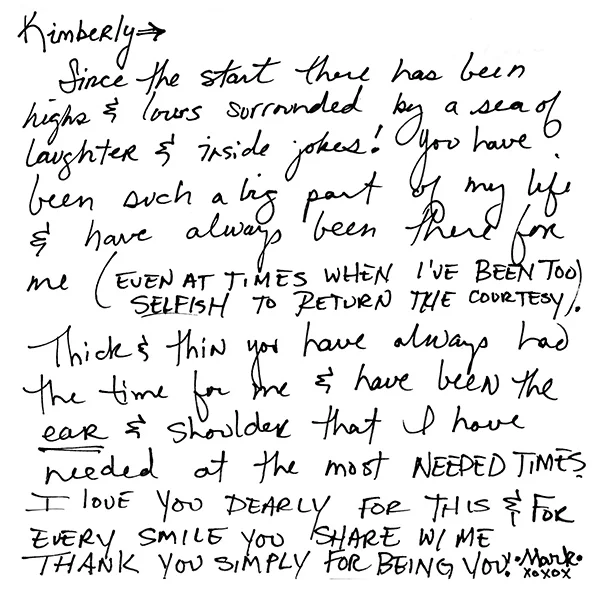 Kimberly→
Since the start there has been
highs & lows surrounded by a sea of
laughter & inside jokes! You have
been such a big part of my life
& have always been there for
me (EVEN AT TIMES WHEN I'VE BEEN TOO
SELFISH TO RETURN THE COURTESY).
Thick & thin you have always had
the time for me & have been the
ear & shoulder that I have
needed at the most NEEDED TIMES.
I LOVE YOU DEARLY FOR THIS & FOR
EVERY SMILE YOU SHARE W/ ME
THANK YOU SIMPLY FOR BEING YOU! •Mark•
xoxox